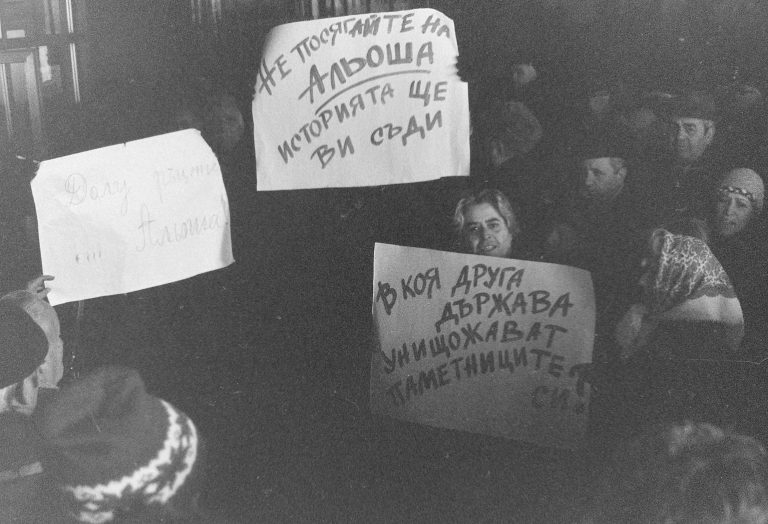 НЕ ПОСЯГАЙТЕ НА
АЛЬОША
ИСТОРИЯТА ЩЕ
ВИ СЪДИ
Долу ръцете
Альоша
В КОЯ ДРУГА
ДЪРЖАВА
УНИЩОЖАВАТ
ПАМЕТНИЦИТЕ
СИ?